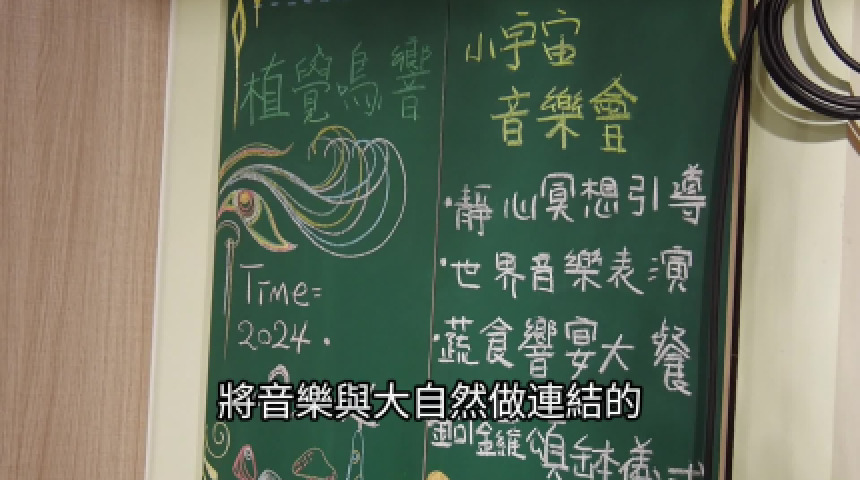 植覺鳴響
Time=
2024.
小宇宙
音樂會
·靜心冥想引導
·世界音樂表演
·蔬食饗宴大餐
銅鑼頌缽儀式
將音樂與大自然做連結的